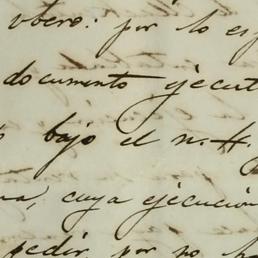 vbero: por lo es
documento ejecut
bajo el n. H.
na, cuya ejecución
pedir por no h